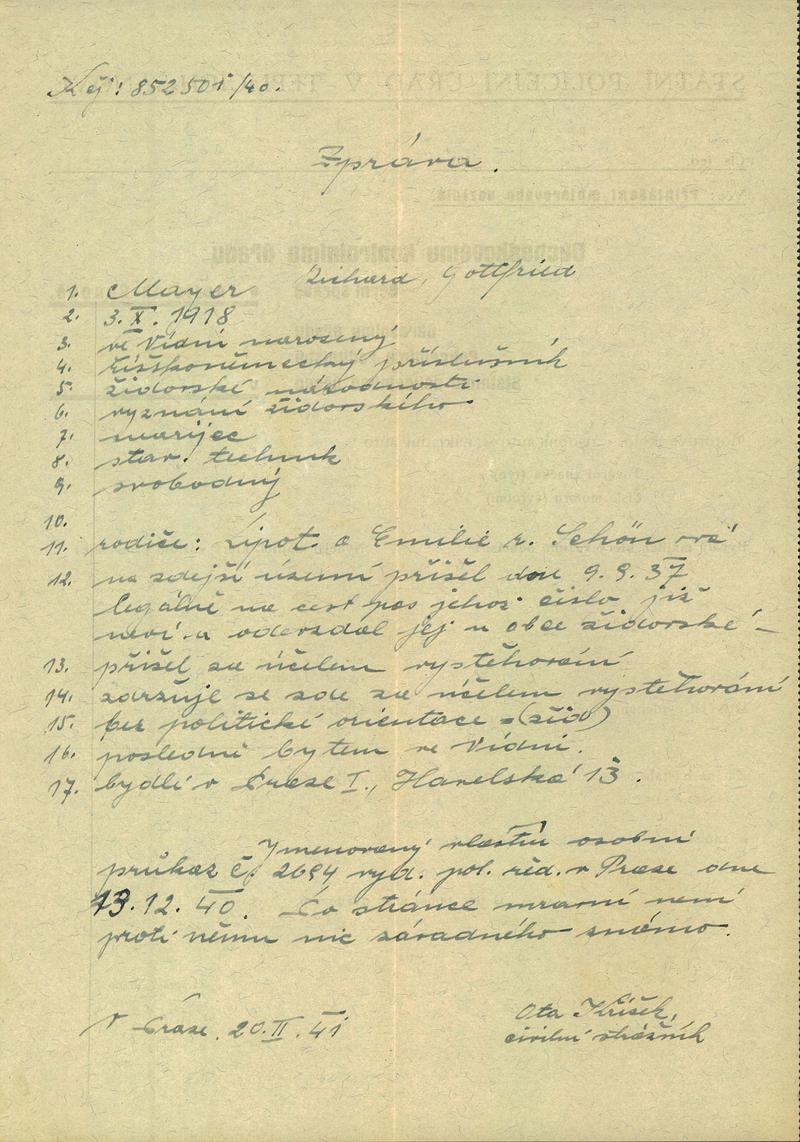 K čj: 852501/40.
Zpráva.
1. Mayer Richard, Gottfried
2. 3. X. 1918
3. ve Vídni narozený
4. říškoněmecký příslušník
5. židovské národnosti
6. vyznání židovského
7. neárijec
8. stav. technik
9. svobodný
10.
11. rodiče: Lipot a Emilie r. Schön ová
12. na zdejší území přišel dne 9. 9. 37
legálně na cest. pas jehož číslo již
neví a odevzdal jej u obce židovské –
13. přišel za účelem vystěhování
14. zdržuje se zde za účelem vystěhování
15. bez politické orientace = (žid)
16. posledně bytem ve Vídni.
17. bydlí v Praze I., Havelská 13.
Jmenovaný vlastní osobní
průkaz č. 2694 vyd. pol. řed. v Praze dne
13. 12. 40. Po stránce mravní není
proti němu nic závadného známo.
V Praze. 20. II. 41
Ota Kříšek,
civilní strážník